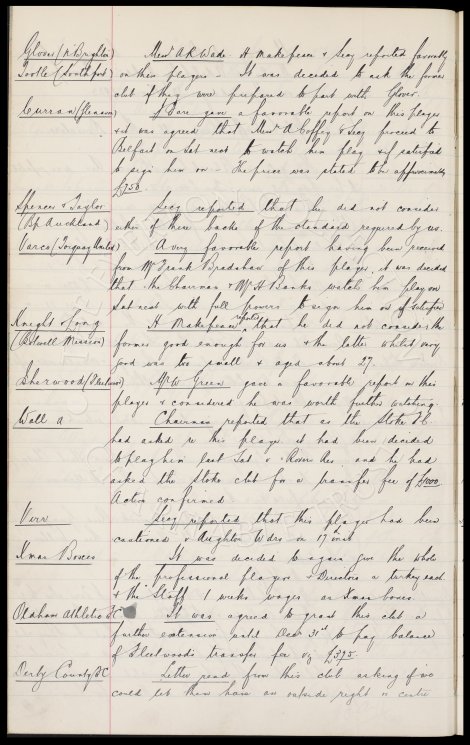 Glover (N. Brighton) Messrs A R Wade H Makepeace & Secy reported favorably
Tootle (Southport) on these players — It was decided to ask the former
club if they were prepared to part with Glover.
Curran (Glenavon) J Dore gave a favorable report on this player
& it was agreed that Messrs A Coffey & Secy proceed to
Belfast on Sat next to watch him play & if satisfied
to sign him on — The price was stated to be approximately
£750.
Spencer & Taylor Secy reported that he did not consider
(Bp Auckland) either of these backs of the standard required by us.
Varco (Torquay United) A very favorable report having been received
from Mr Frank Bradshaw of this player, it was decided
that the Chairman & Mr H Banks watch him play on
Sat next with full powers to sign him on if satisfied
Knight & Long H Makepeace reported that he did not consider the
(Botwell Mission) former good enough for us & the latter whilst very
good was too small & aged about 27.
Sherwood (Fleetwood) Mr W Green gave a favorable report on this
player & considered he was worth further watching.
Wall a Chairman reported that as the Stoke F.C.
had asked re this player it had been decided
to play him last Sat v Rover Res and he had
asked the Stoke club for a transfer fee of £1000
Action confirmed
Virr Secy reported that this player had been
cautioned v Heighton Wdrs on 17 inst
Xmas Boxes It was decided to again give the whole
of the Professional players & Directors a turkey each
& the Staff 1 weeks wages as Xmas boxes
Oldham Athletic FC It was agreed to grant this club a
further extension until Dec 31st to pay balance
of Fleetwoods transfer fee viz £395
Derby County FC Letter read from this club asking if we
could let them have an outside right or centre